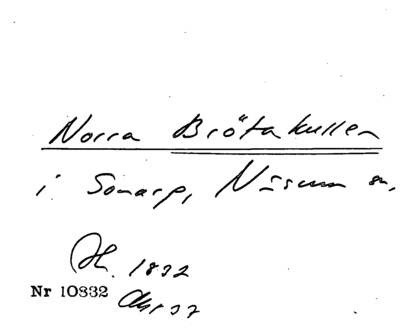 Norra Brötakullen
i Sonarp, Näsum sn,
1832
Nr 10332